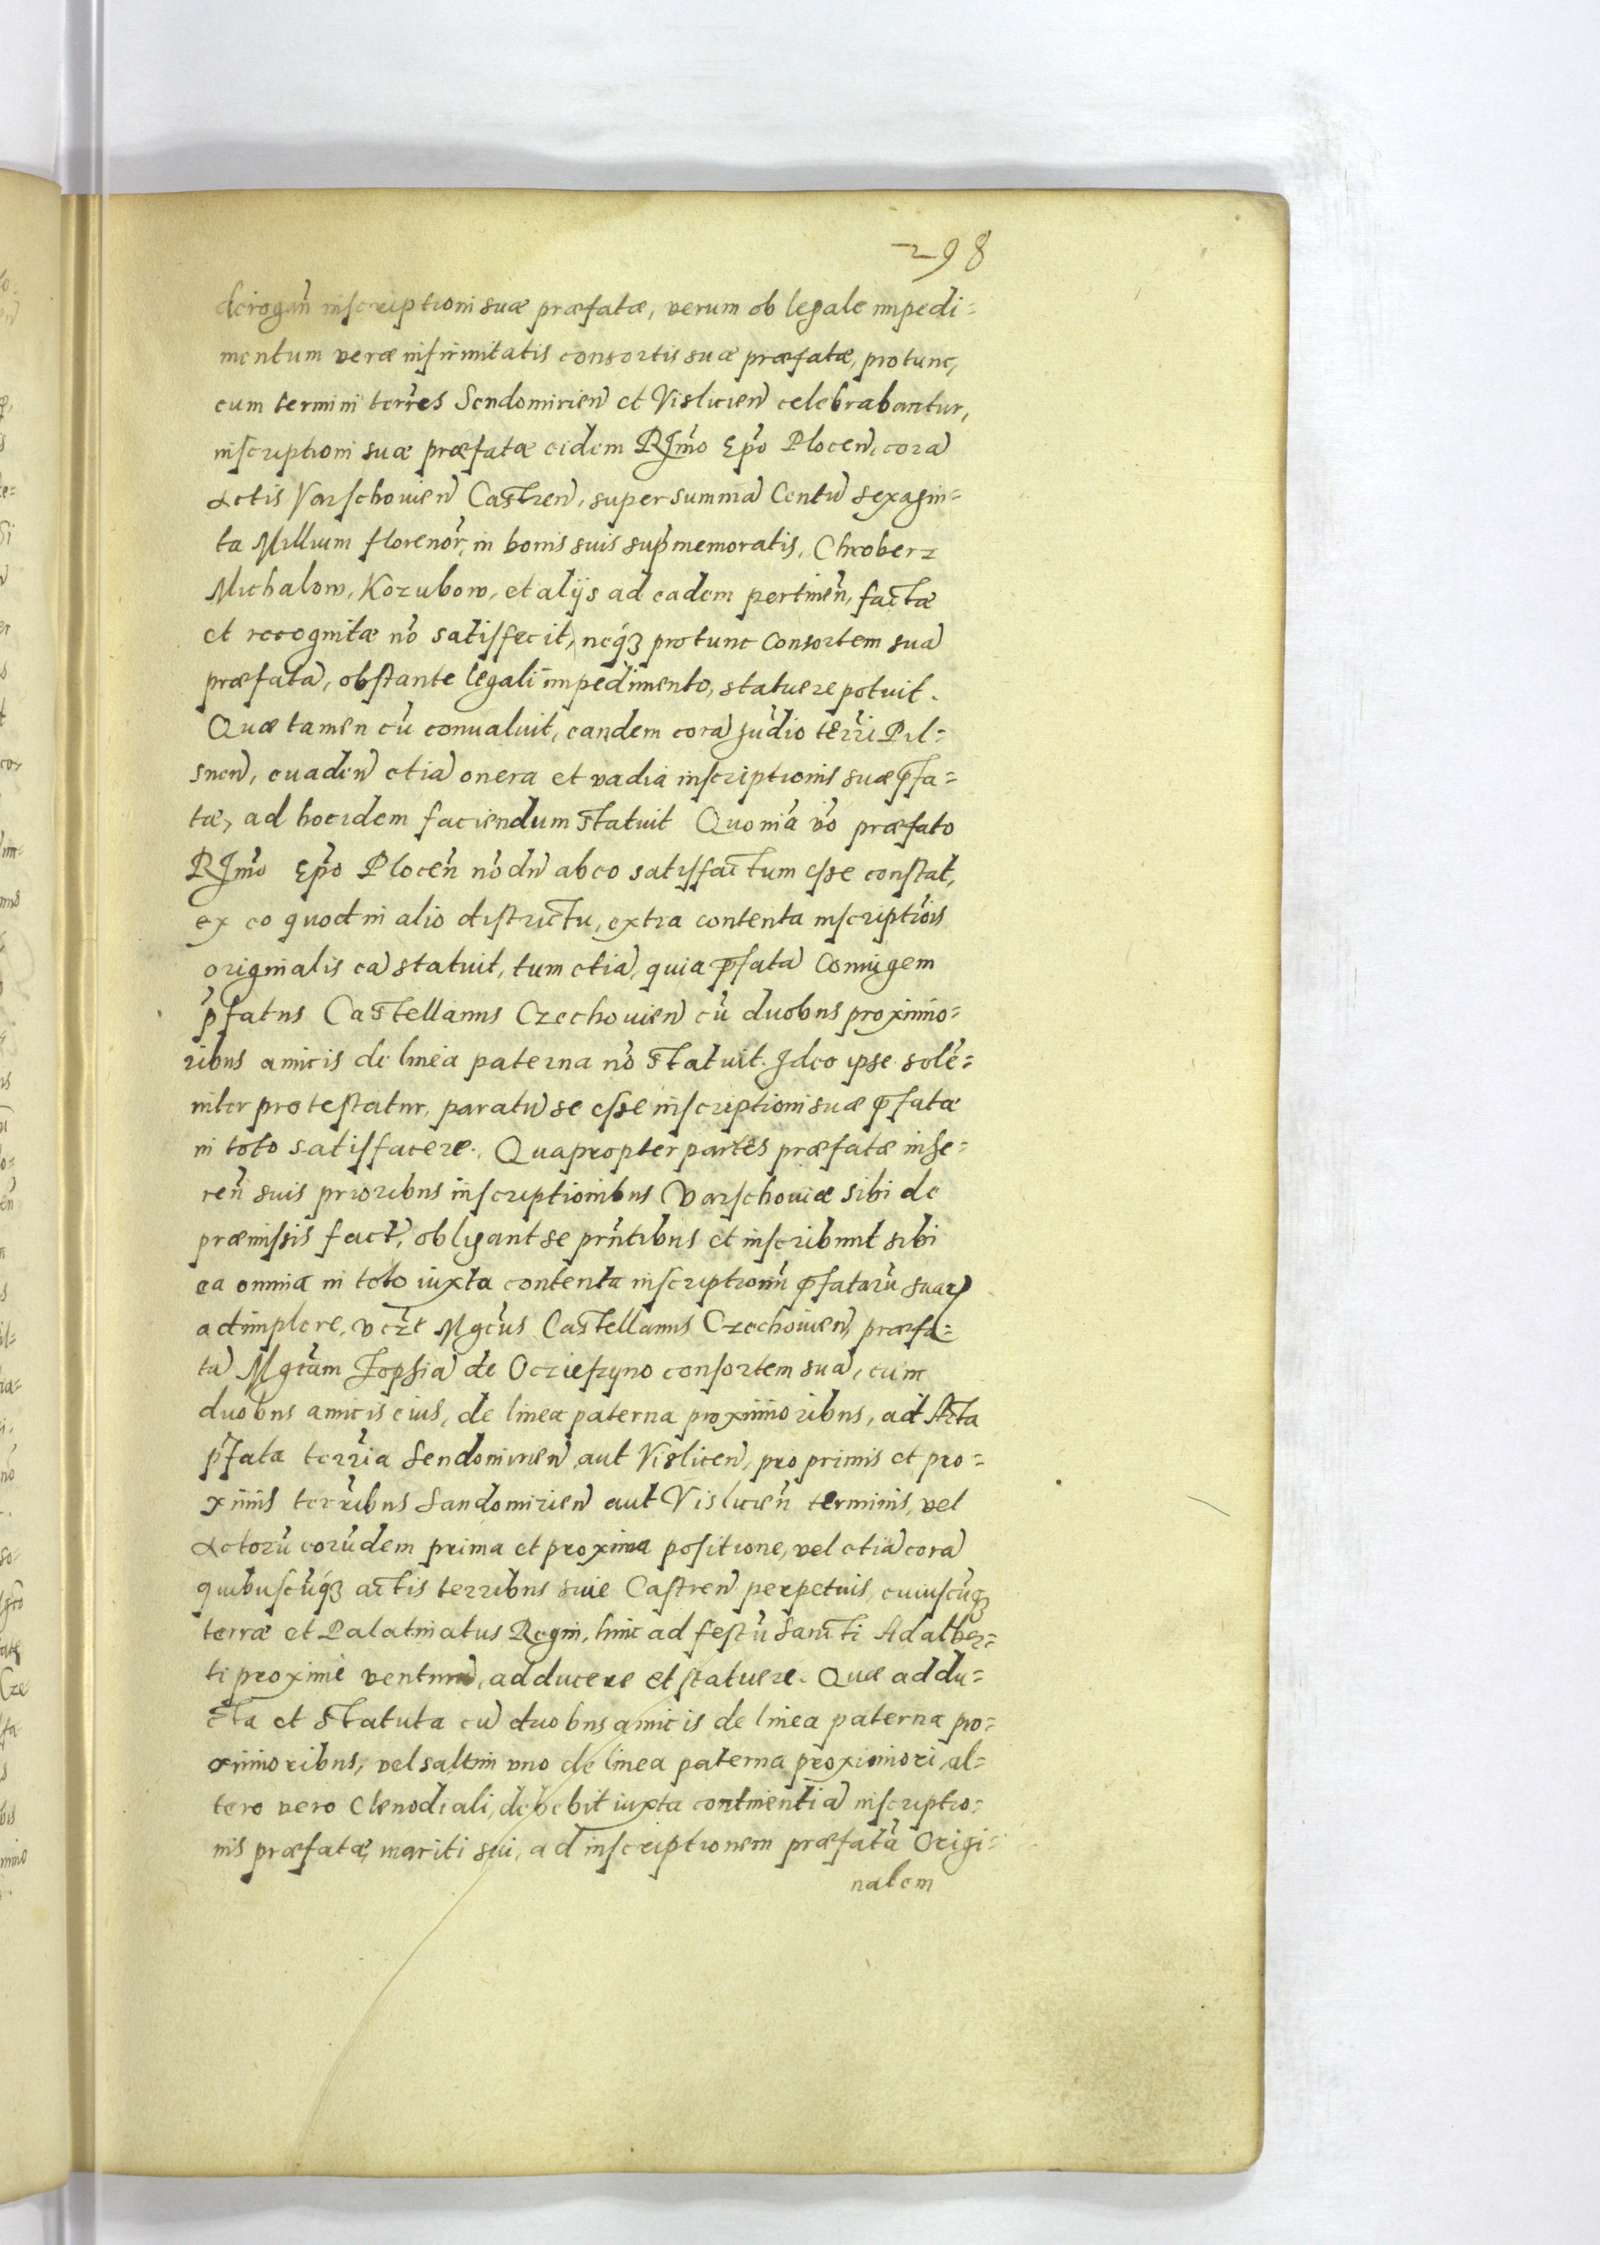 298
derogan̄ inscriptioni suæ præfatæ, verum ob legale impedi=
mentum veræ infirmitatis consortis suæ præfatæ, protunc,
cum termini terrēs Sendomirien̄ et Vislicien̄ celebrabantur,
inscriptioni suæ præfatæ eidem RJmo Epō Plocen̄, corā
Actis Varschouien̄ Castren̄, super summā Centū sexagin=
ta Millium florenor̄, in bonis suis sup̄memoratis, Chroberz
Michalow, Kozubow, et alijs ad eadem pertinen̄, factæ
et recognitæ nō satisfecit, neqȝ protunc Consortem suā
præfatā, obstante legali impedimento, statuere potuit.
Quæ tamen cū conualuit, eandem corā Judio terri Pil=
snen̄, euaden̄ etiā onera et vadia inscriptionis suæ p̄fa=
tæ, ad hocidem faciendum statuit Quoniā v̄o præfato
RJmo Epō Plocen̄ nōdn̄ ab eo satisfactum esse constat,
ex eo quod in alio districtu, extra contenta inscriptiōis
originalis eā statuit, tum etiā, quia p̄fatā Coniugem
p̄fatus Castellanus Czechouien̄ cū duobus proximio=
ribus amicis de linea paterna nō statuit. Ideo ipse solē=
niter protestatur, paratū se esse inscriptioni suæ p̄fatæ
in toto satisfacere. Quapropter partes præfatæ inhe=
ren̄ suis prioribus inscriptionibus Varschouiæ sibi de
præmissis fact̄, obligant se prn̄tibus et inscribunt sibi
ea omnia in toto iuxta contenta inscriptionū p̄fatarū suarꝝ
adimplere, vczt Mgcus Castellanus Czechouien̄, præfa=
tā Mgcam Zophiā de Oczieszyno consortem suā, cum
duobus amicis eius, de linea paterna proximioribus, ad Acta
p̄fata terria Sendomirien̄ aut Vislicen̄, pro primis et pro=
ximis terribus Sandomirien̄ aut Vislicien̄ terminis, vel
Actorū eorūdem prima et proxima positione, vel etiā corā
quibuscūqȝ actis terribus siue Castren̄ perpetuis, cuiuscūqȝ
terræ et Palatinatus Regni, hinc ad festū Sancti Adalber=
ti proxime venturū, adducere et statuere. Quæ addu=
cta et statuta cū duobus amicis de linea paterna pro=
ximioribus, vel saltim vno de linea paterna proximiori, al=
tero vero clenodiali, debebit iuxta continentiā inscriptio=
nis præfatæ, mariti sui, ad inscriptionem præfatā Origi=
nalem